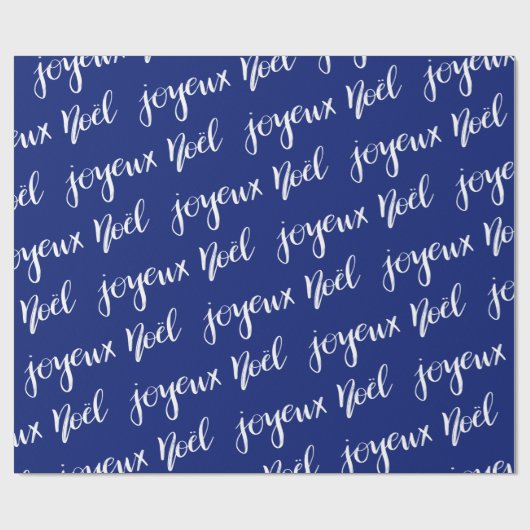 joyeux Noël
joyeux Noël joyeux Noël joyeux
Noël joyeux Noël joyeux Noël joyeux
joyeux Noël joyeux Noël joyeux Noël
Noël joyeux Noël joyeux Noël joyeux
joyeux Noël joyeux Noël joyeux
Noël joyeux Noël joyeux Noël
joyeux Noël joyeux Noël